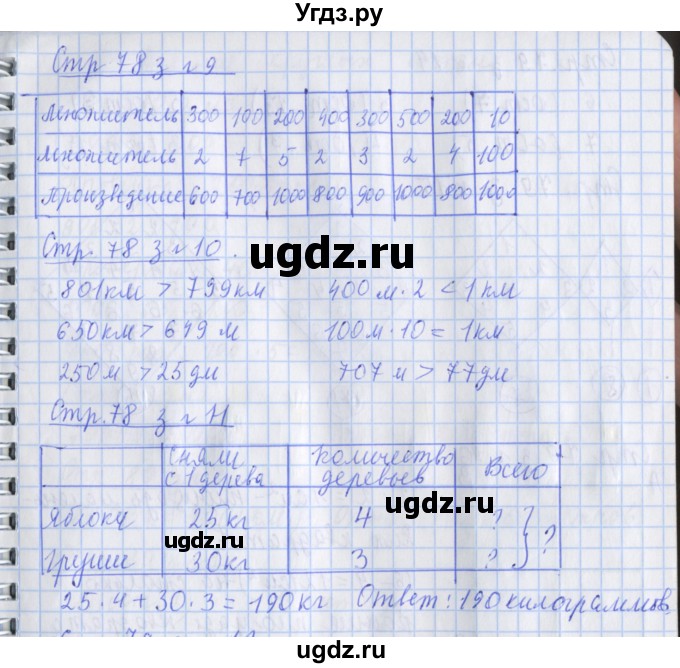 Угдз.ру
Стр 78 з г 9
Множитель 300 100 200 400 300 500 200 10
Множитель 2 7 5 2 3 2 4 100
Произведение 600 700 1000 800 900 1000 800 1000
ugdz.ru
Стр. 78 з г 10.
801км > 799км 400м·2 < 1км
650км > 649 м 100м·10 = 1км
250м > 25дм 707м > 77дм
ugdz.ru
Стр. 78 з г 11
Сняли с 1 дерева Количество деревьев Всего
ugdz.ru
Яблоки 25кг 4 ? } ?
ugdz.ru
Груши 30кг 3 ?
25·4+30·3=190кг Ответ: 190 килограммов.
ugdz.ru